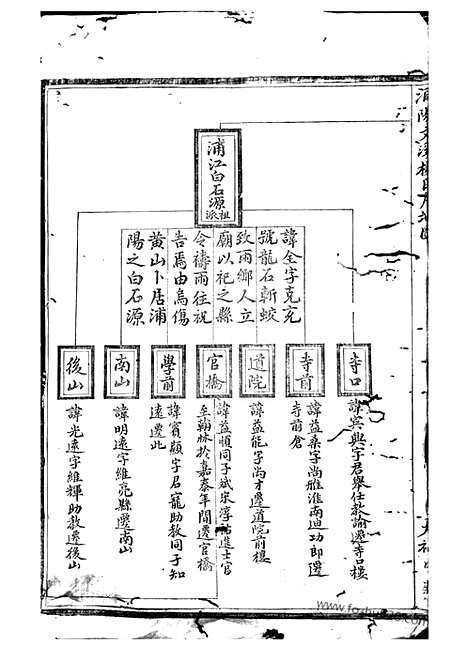 浦江白石源
祖派
諱全字克充
號龍石斬蛟
致雨鄉人立
廟以祀之縣
令禱雨往祝
告焉由烏傷
黃山卜居浦
陽之白石源
寺口
諱賓興字君舉仕教諭遷寺口樓
寺前
諱益桑字尚雅淮南迪功郎遷
寺前倉
道院
諱益能字尚才遷道院前樓
官橋
諱益順同子斌宋淳祐進士官
至翰林於嘉泰年間遷官橋
學前
諱賓顯字君寵助教同子知
遠遷此
南山
諱明遠字維亮縣遷南山
後山
諱光遠字維輝助教遷後山